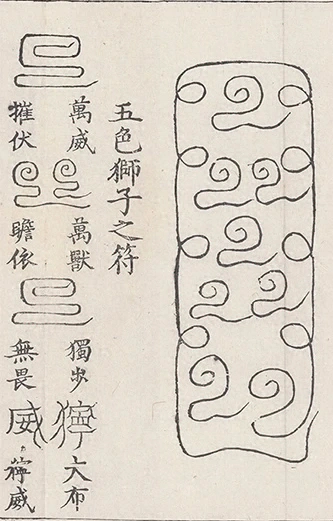 五色獅子之符
萬威 萬獸 獨步 獰 大布
摧伏 瞻依 無畏 威 獰威